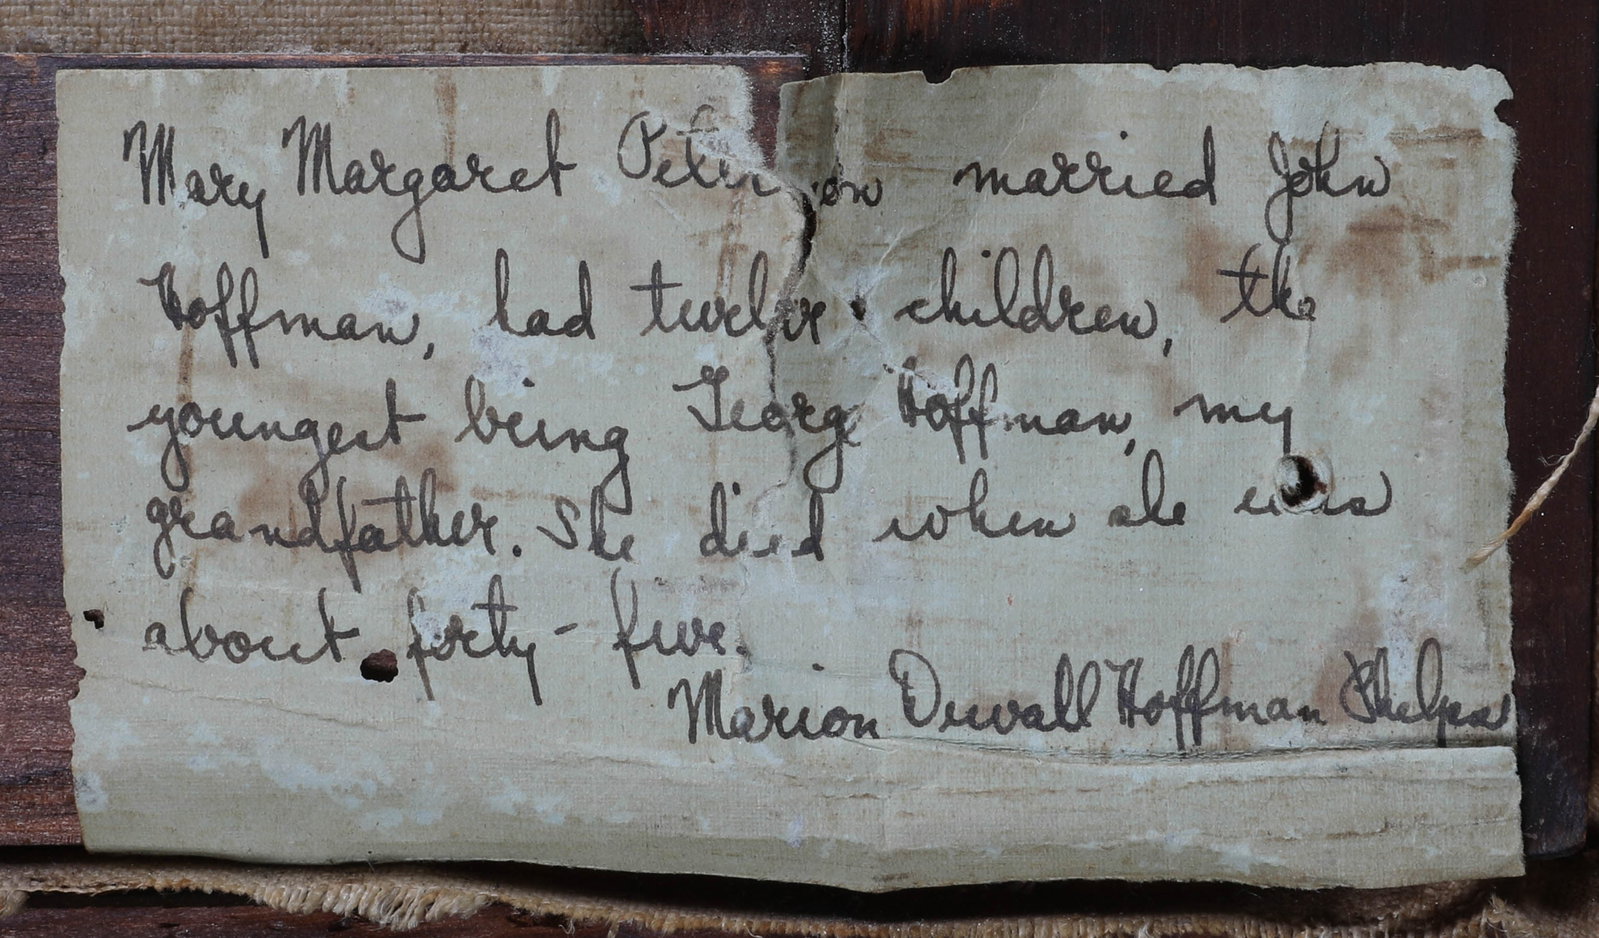 Mary Margaret Peterson married John
Hoffman, had twelve children, the
youngest being George Hoffman, my
grandfather. She died when she was
about forty-five.
Marion Duvall Hoffman Phelps